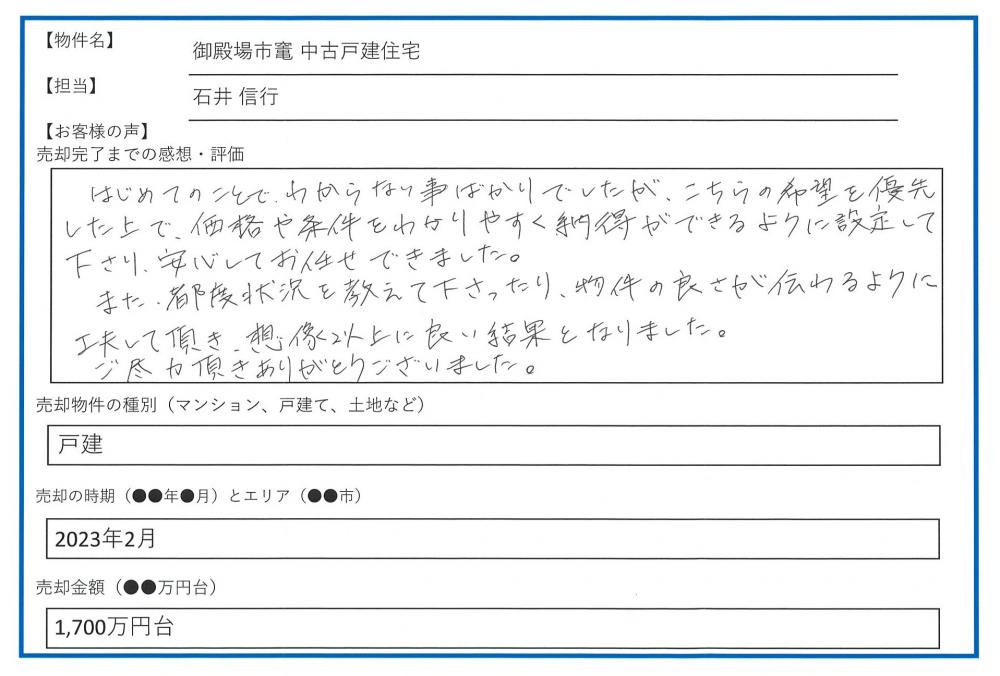 【物件名】
御殿場市竃 中古戸建住宅
【担当】
石井 信行
【お客様の声】
売却完了までの感想・評価
はじめてのことで、わからない事ばかりでしたが、こちらの希望を優先
した上で、価格や条件をわかりやすく納得ができるように設定して
下さり、安心してお任せできました。
また、都度状況を教えて下さったり、物件の良さが伝わるように
工夫して頂き、想像以上に良い結果となりました。
ご尽力頂きありがとうございました。
売却物件の種別（マンション、戸建て、土地など）
戸建
売却の時期（●●年●月）とエリア（●●市）
2023年2月
売却金額（●●万円台）
1,700万円台